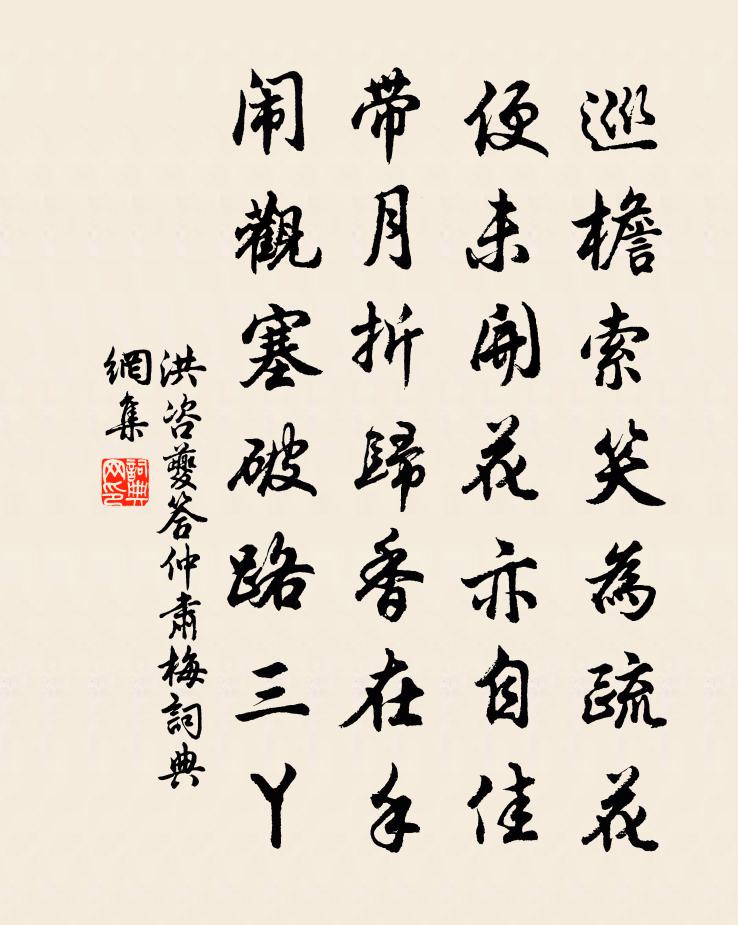 巡檐索笑為疏花
便未開花亦自佳
帶月折歸香在手
闹觀塞破路三丫
洪咨夔答仲肅梅詞典
網集
詞典
网印